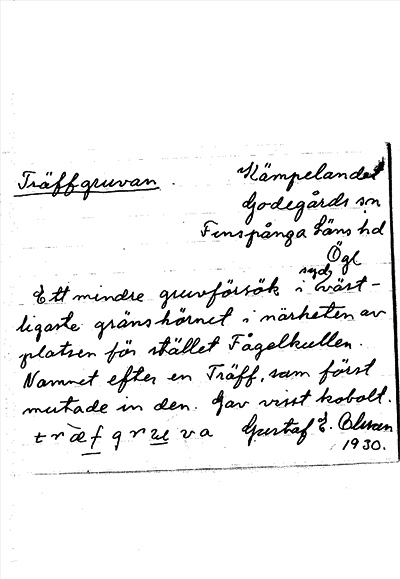 Träffgruvan
Kämpelandet
Godegårds sn
Finspånga läns hd
Ögl
Ett mindre gruvförsök i sydväst-
ligaste gränshörnet i närheten av
platsen för stället Fågelkullen.
Namnet efter en Träff, som först
mutade in den. Gav visst kobolt.
Gustaf E.
1930.